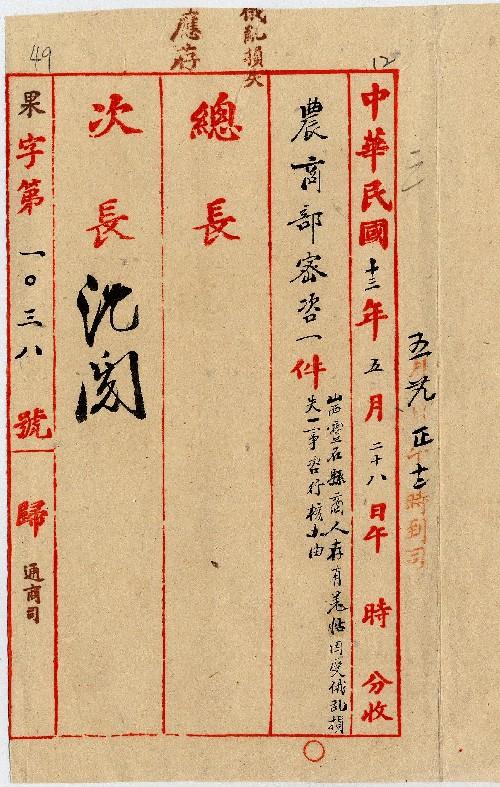 五月廿九正午十二時到司
中華民國十三年五月二十八日午時分收
農商部密咨一件
山西靈石縣商人存有羌帖因受俄亂損
失一事咨行核办由
俄亂損失
應存
總長
次長
沈閱
果字第一〇三八號
歸通商司
12
49